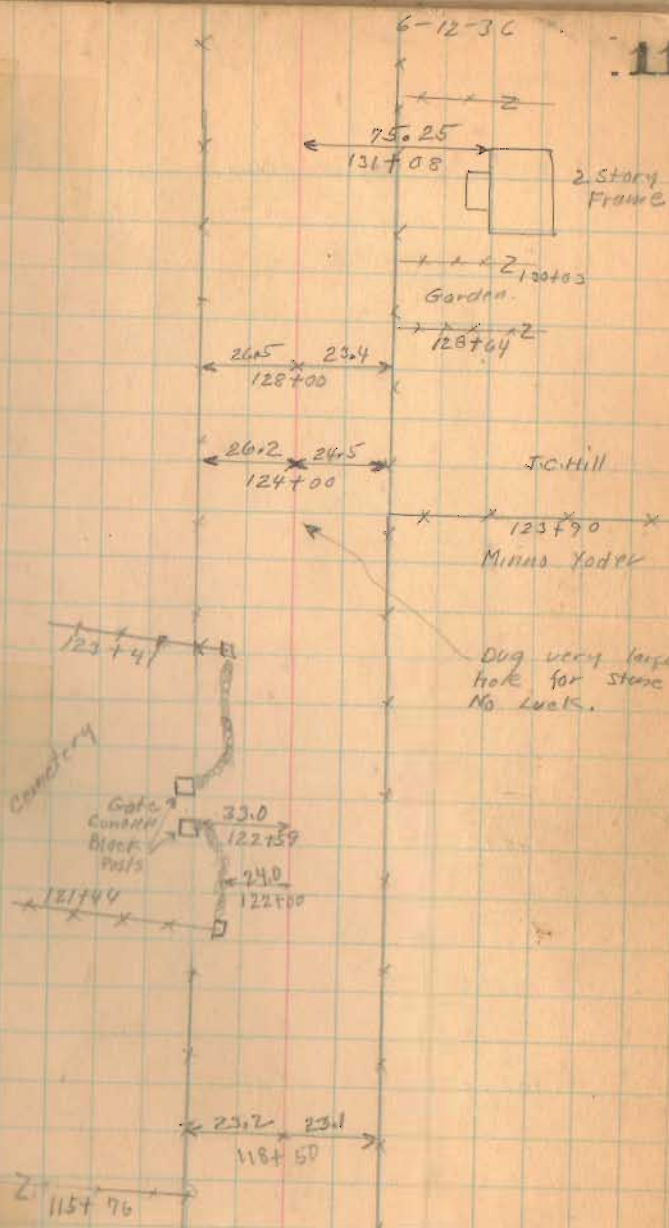 6-12-36
11
Z
75.25
131+08
2 Story
Frame
Z 130+03
Garden.
Z
128+64
26.5 23.4
128+00
26.2 24.5
124+00
J.C. Hill
123+90
Minno Yoder
Dug very large
hole for stone
No Luck.
123+41
Cemetery
Gate
Block
Posts
33.0
122+59
24.0
122+00
121+44
23.2 23.1
118+50
Z
115+76